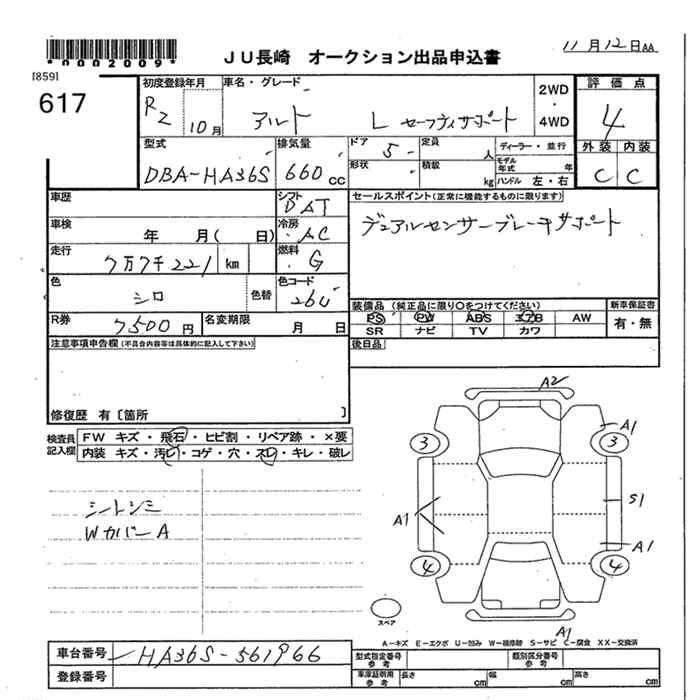 *0002009*
JU長崎 オークション出品申込書
11月12日AA
[859]
617
初度登録年月
R2 10月
車名・グレード
アルト L セーフティサポート
2WD
・
4WD
評価点
4
外装 内装
C C
型式
DBA-HA36S
排気量
660cc
ドア
5
形状
定員
人
積載
kg
ディーラー・並行
モデル年式 年
ハンドル 左・右
車歴
シフト
DAT
セールスポイント(正常に機能するものに限ります)
デュアルセンサーブレーキサポート
車検
年 月( 日)
冷房
AC
走行
7万7千221 km
燃料
G
色
シロ
色替
色コード
26U
R券
7500円
名変期限
月 日
装備品(純正品に限り○をつけてください)
PS PW ABS エアB AW
SR ナビ TV カワ
新車保証書
有・無
注意事項申告欄(不具合内容等は具体的に記入して下さい)
後日品
修復歴 有〔箇所 〕
検査員記入欄
FW キズ・飛石・ヒビ割・リペア跡・×要
内装 キズ・汚レ・コゲ・穴・スレ・キレ・破レ
シートシミ
WカバーA
A2
A1
3 3
A1
S1
A1
4 4
スペア
A1
A-キズ E-エクボ U-凹み W-補修跡 S-サビ C-腐食 XX-交換済
車台番号
HA36S-561966
登録番号
型式指定番号 参考
類別区分番号 参考
車庫証明用 参考
長さ cm 幅 cm 高さ cm